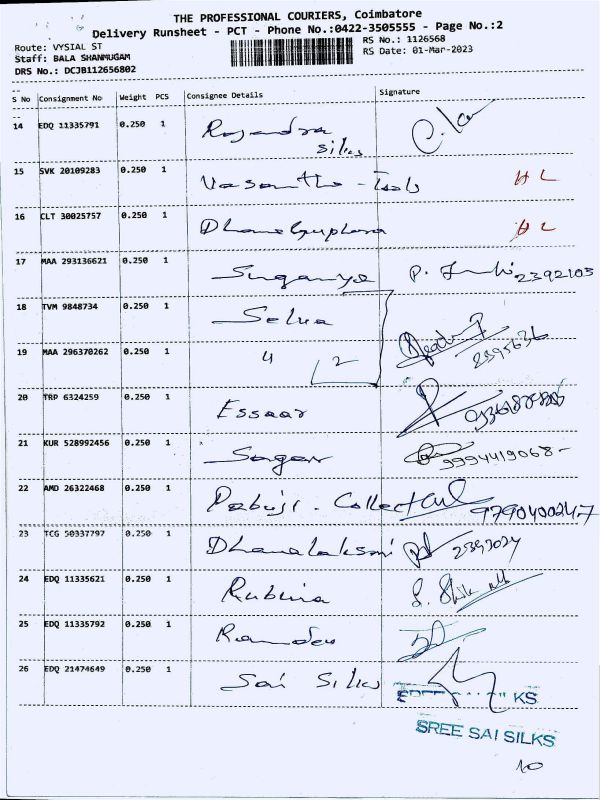 THE PROFESSIONAL COURIERS, Coimbatore
Delivery Runsheet - PCT - Phone No.:0422-3505555 - Page No.:2
Route: VYSIAL ST RS No.: 1126568
Staff: BALA SHANMUGAM RS Date: 01-Mar-2023
DRS No.: DCJB112656802
S No Consignment No Weight PCS Consignee Details Signature
14 EDQ 11335791 0.250 1 Rajendra
silks
15 SVK 20109283 0.250 1 H L
16 CLT 30025757 0.250 1 H L
17 MAA 293136621 0.250 1 Suganya P. 2392103
18 TVM 9848734 0.250 1 Selva
19 MAA 296370262 0.250 1 2
20 TRP 6324259 0.250 1 Essaar
21 KUR 528992456 0.250 1 Sagar 9994419068-
22 AMD 26322468 0.250 1 9790400247
23 TCG 50337797 0.250 1 Dhanalaksmi 2393024
24 EDQ 11335621 0.250 1 Rubina
25 EDQ 11335792 0.250 1 Ramdev
26 EDQ 21474649 0.250 1 Sai Silks
KS
SREE SAI SILKS